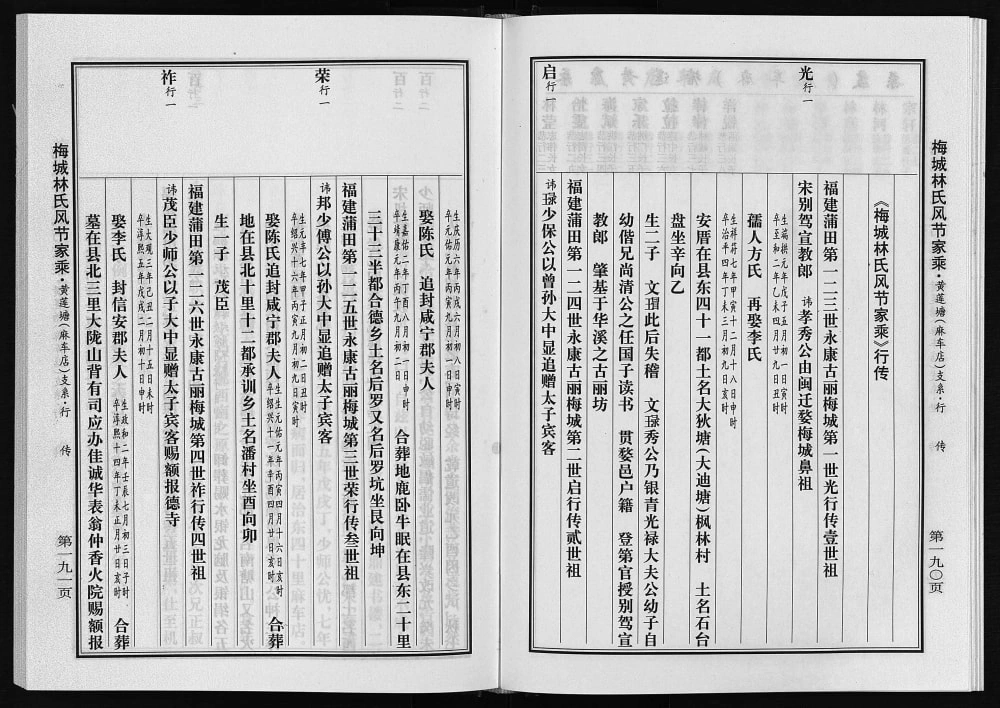 梅城林氏风节家乘·黄莲塘(麻车店)支系·行传
第一九〇页
光行一
启行一
《梅城林氏风节家乘》行传
福建莆田第一二三世永康古丽梅城第一世光行传壹世祖
宋别驾宣教郎 讳孝秀公由闽迁婺梅城鼻祖
生端拱元年戊子五月初一日寅时
卒至和二年乙未四月廿九日丑时
孺人方氏 再娶李氏
生祥符七年甲寅十二月十八日寅时
卒治平四年丁未三月初九日亥时
安厝在县东四十一都土名大狄塘(大迪塘)枫林村 土名石台
盘坐辛向乙
生二子 文瑁此后失稽 文琭秀公乃银青光禄大夫公幼子自
幼偕兄尚清公之任国子读书 贯婺邑户籍 登第官授别驾宣
教郎 肇基于华溪之古丽坊
福建莆田第一二四世永康古丽梅城第二世启行传贰世祖
讳琭少保公以曾孙大中显追赠太子宾客
生庆历六年丙戌六月初八日寅时
卒元佑元年丙寅九月初一日寅时
娶陈氏 追封咸宁郡夫人
生嘉佑二年丁酉八月初一日申时
卒靖康元年丙午九月初二日
合葬地鹿卧牛眠在县东二十里
三十三半都合德乡土名后罗又名后罗坑坐艮向坤
荣行一
福建莆田第一二五世永康古丽梅城第三世荣行传叁世祖
讳邦少傅公以孙大中显追赠太子宾客
生元丰七年甲子正月初二日丑时
卒绍兴十六年丙寅九月初九日寅时
娶陈氏追封咸宁郡夫人
生元佑元年丙寅四月十六日亥时
卒绍兴十一年辛酉四月廿日亥时
合葬
地在县北十里十二都承训乡土名潘村坐酉向卯
生一子 茂臣
祚行一
福建莆田第一二六世永康古丽梅城第四世祚行传四世祖
讳茂臣少师公以子大中显赠太子宾客赐额报德寺
生大观三年己丑二月十五日未时
卒淳熙五年戊戌二月初十日申时
娶李氏 封信安郡夫人
生政和二年壬辰七月初三日子时
卒淳熙十四年丁未正月廿日亥时
合葬
墓在县北三里大陇山背有司应办佳诚华表翁仲香火院赐额报
梅城林氏风节家乘·黄莲塘(麻车店)支系·行传
第一九一页